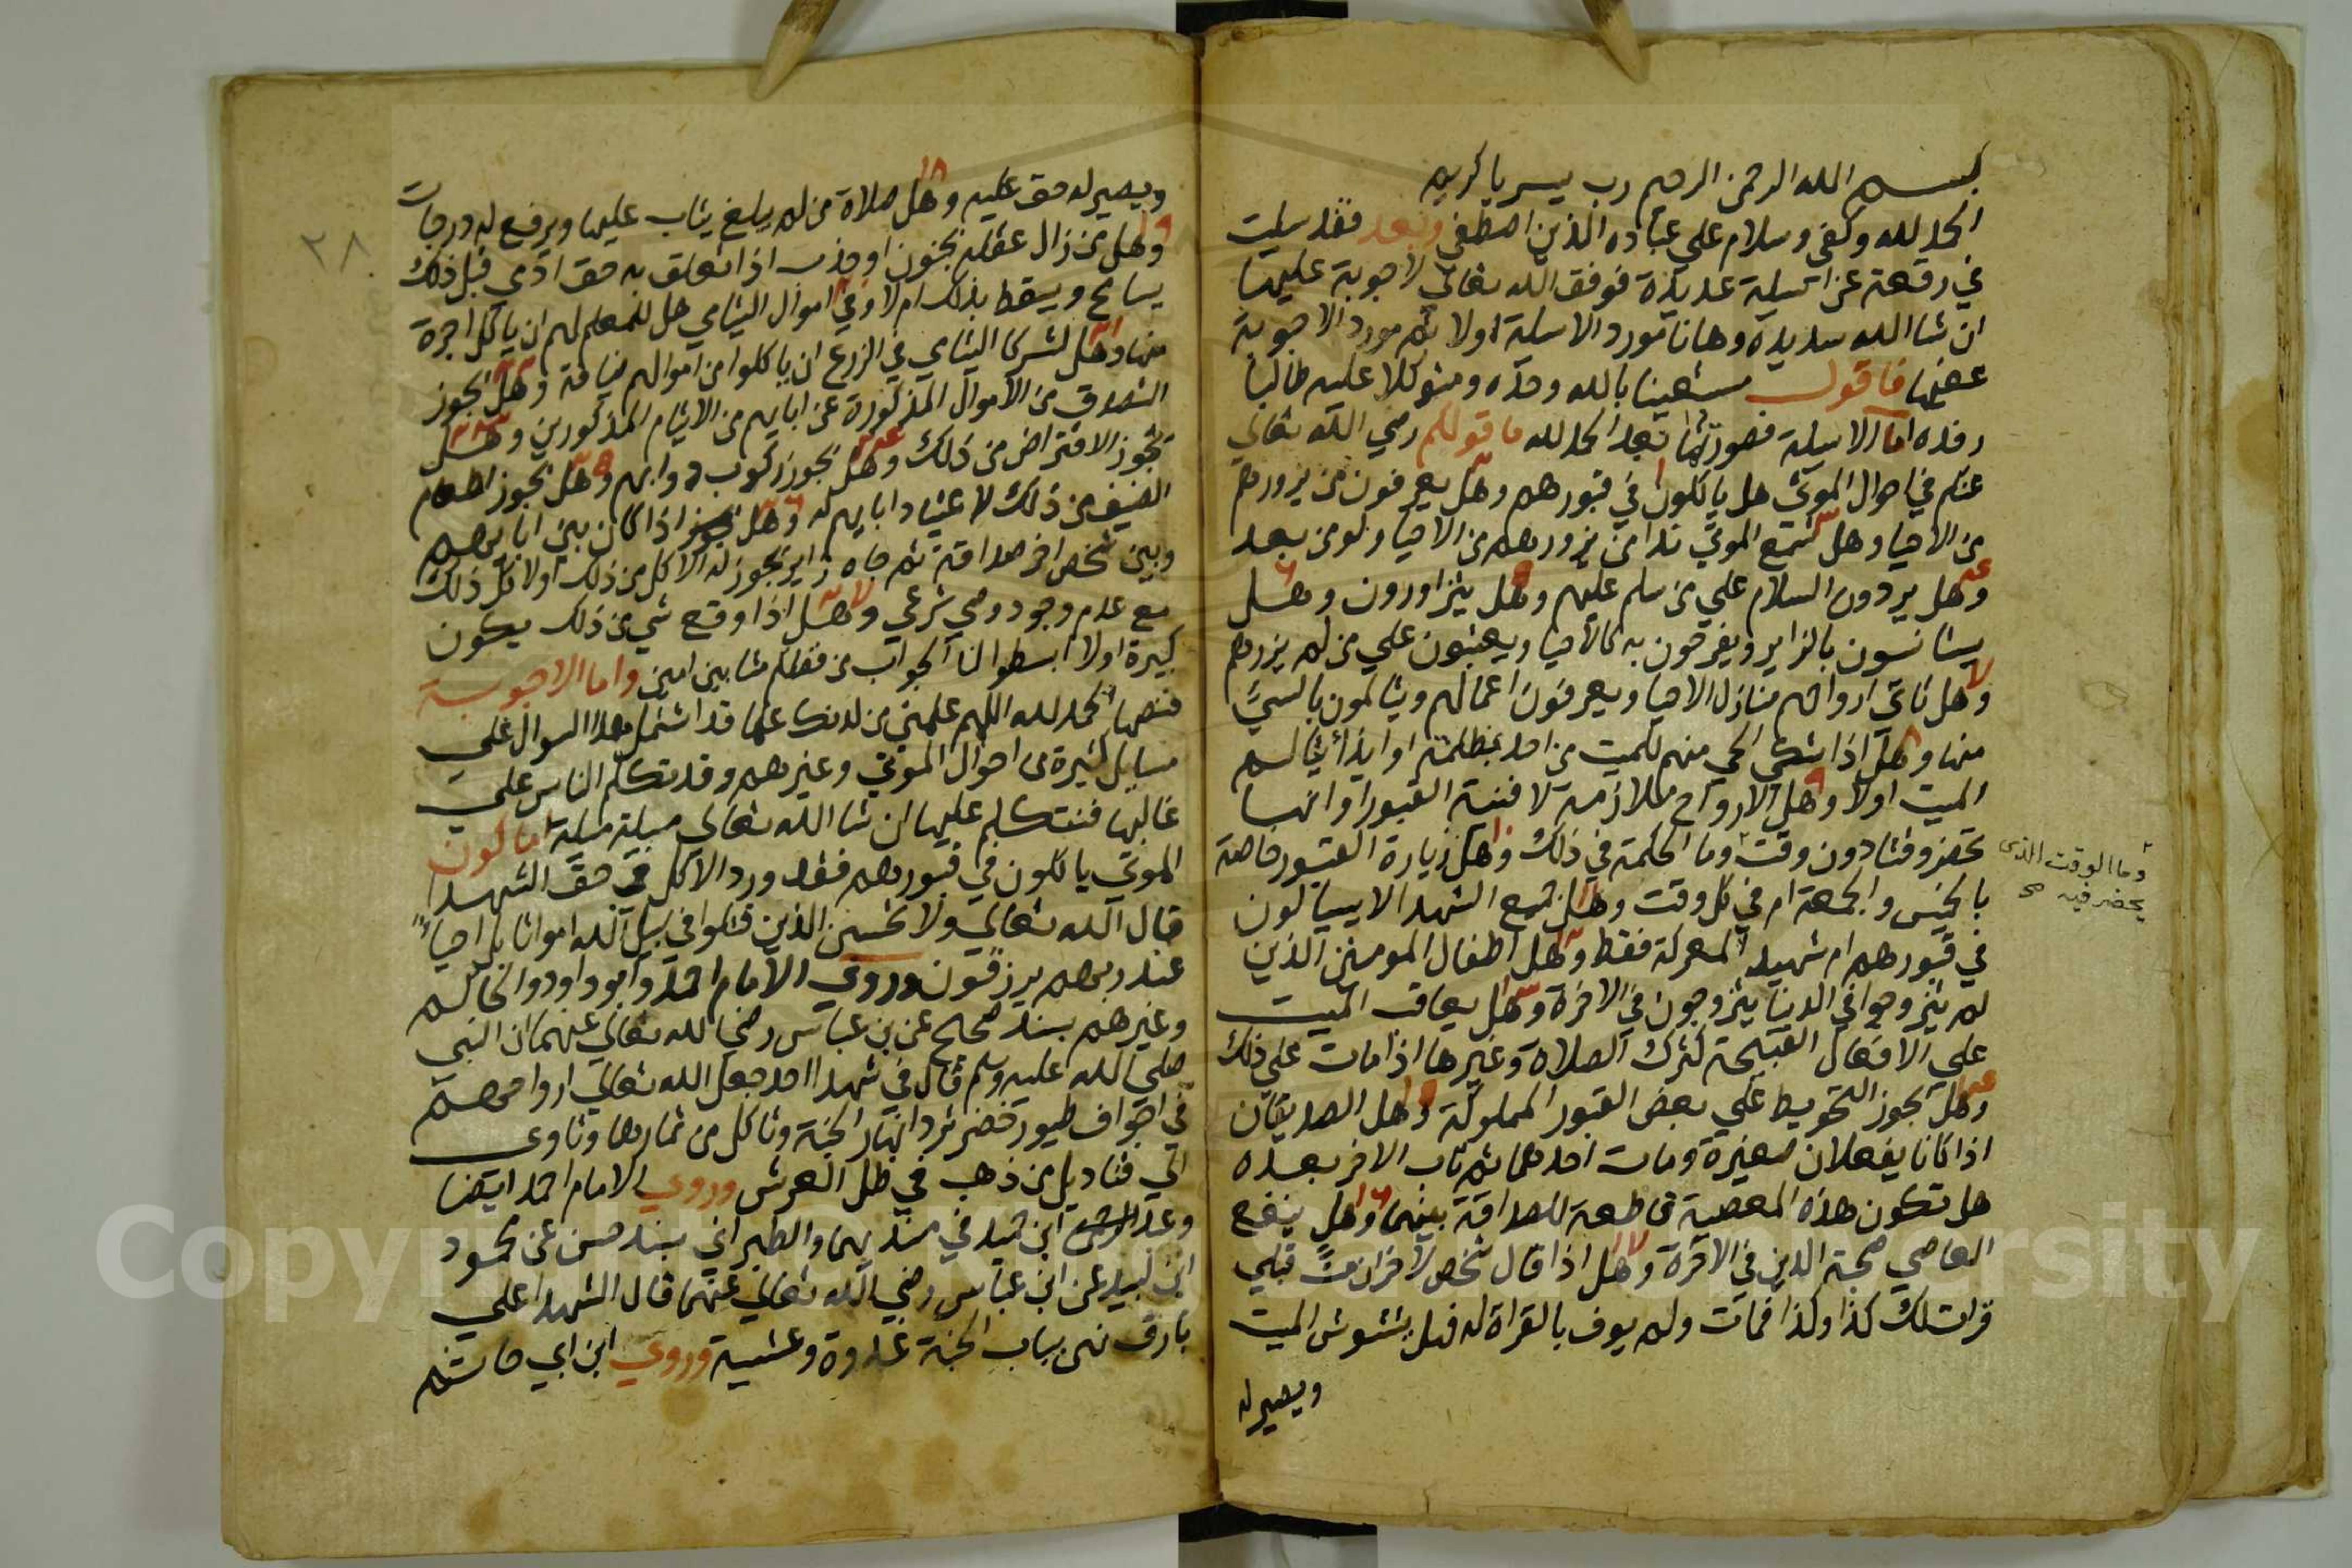 بسم الله الرحمن الرحيم رب يسر يا كريم
الحمد لله وكفى وسلام علي عباده الذين اصطفي وبعد فقد سيلت
في رقعة عن اسيلة عديدة فوفق الله تعالي لاجوبة عليها
ان شا الله سديدة وها انا مورد الاسلة اولا ثم مورد الاجوبة
عنها فاقول مستعينا بالله وحده ومتوكلا عليه طالبا
رفده اما الاسيلة فصورتها بعد الحمد لله ما قولكم رضي الله تعالي
عنكم في احوال الموتى هل ياكلون في قبورهم وهل يعرفون من يزورهم
من الاحيا وهل تسمع الموتي ندا من يزورهم من الاحيا ولو من بعد
وهل يردون السلام علي من سلم عليهم وهل يتزاورون وهل
يستانسون بالزاير ويفرحون به كالاحيا ويعتبون علي من لم يزرهم
وهل تاتي ارواحهم منازل الاحيا ويعرفون اعمالهم ويتالمون بالسيئ
منها وهل اذا شكى الحي منهم لميت من احد بمظلمة او ايذا يتالم
الميت اولا وهل الارواح ملازمة لافنية القبور او انها
تحضر وقتا دون وقت وما الحكمة في ذلك وهل زيارة القبور خاصة
بالخميس والجمعة ام في كل وقت وهل جميع الشهدا لا يسيالون
في قبورهم ام شهيد المعركة فقط وهل اطفال المومنين الذين
لم يتزوجوا في الدنيا يتزوجون في الاخرة وهل يعاقب الميت
علي الافعال القبيحة كترك الصلاة وغيرها اذا مات علي ذلك
وهل يجوز التحويط علي بعض القبور المملوكة وهل الصديقان
اذا كانا يفعلان صغيرة ومات احدهما ثم تاب الاخر بعده
هل تكون هذه المعصية قاطعة للصداقة بينهما وهل ينفع
العاصي صحبة الدين في الاخرة وهل اذا قال شخص لاخر ان مت قبلي
قرات لك كذا وكذا فمات ولم يوف بالقراة له فهل يتشوش الميت
ويصير له
وما الوقت الذى
يحضر فيه صح
٢٨
ويصير له حق عليه وهل صلاة من لم يبلغ يثاب عليها ويرفع له درجات
وهل من زال عقله بجنون او جذب اذا تعلق به حق ادمي قبل ذلك
يسامح ويسقط بذلك ام لا وفي اموال اليتامي هل لمعلمهم ان ياكل اجرة
منها وهل لشركا اليتامي في الزرع ان ياكلوا من اموالهم ضيافة وهل يجوز
التصدق من الاموال المذكورة عن ابايهم من الايتام المذكورين وهل
يجوز الاقتراض من ذلك وهل يجوز ركوب دوابهم وهل يجوز اطعام
الضيف من ذلك لاعتياد ابايهم له وهل يجوز اذا كان بين ابايهم
وبين شخص اخر صداقة ثم جاه زاير يجوز له الاكل من ذلك اولا كل ذلك
مع عدم وجود وصي شرعي وهل اذا وقع شي من ذلك يكون
كبيرة اولا ابسطوا لنا الجواب من فضلكم مثابين امين واما الاجوبة
فنصها الحمد لله اللهم علمني من لدنك علما قد اشتمل هذا السوال علي
مسايل كثيرة من احوال الموتي وغيرهم وقد تكلم الناس علي
غالبها فنتكلم عليها ان شا الله تعالي مسيلة مسيلة اما كون
الموتي ياكلون في قبورهم فقد ورد الاكل في حق الشهدا
قال الله تعالي ولا تحسبن الذين قتلوا في سبيل الله امواتا بل احياء
عند ربهم يرزقون وروي الامام احمد وابو داود والحاكم
وغيرهم بسند صحيح عن بن عباس رضي الله تعالي عنهما ان النبي
صلي الله عليه وسلم قال في شهدا احد جعل الله تعالي ارواحهم
في اجواف طيور خضر ترد انهار الجنة وتاكل من ثمارها وتاوي
الي قناديل من ذهب في ظل العرش وروي الامام احمد ايضا
وعبد ابن حميد في مسنديهما والطبراني بسند حسن عن محمود
ابن لبيد عن ابن عباس رضي الله تعالي عنهما قال الشهدا علي
بارق نهر بباب الجنة غدوة وعشية وروي ابن ابي حاتم